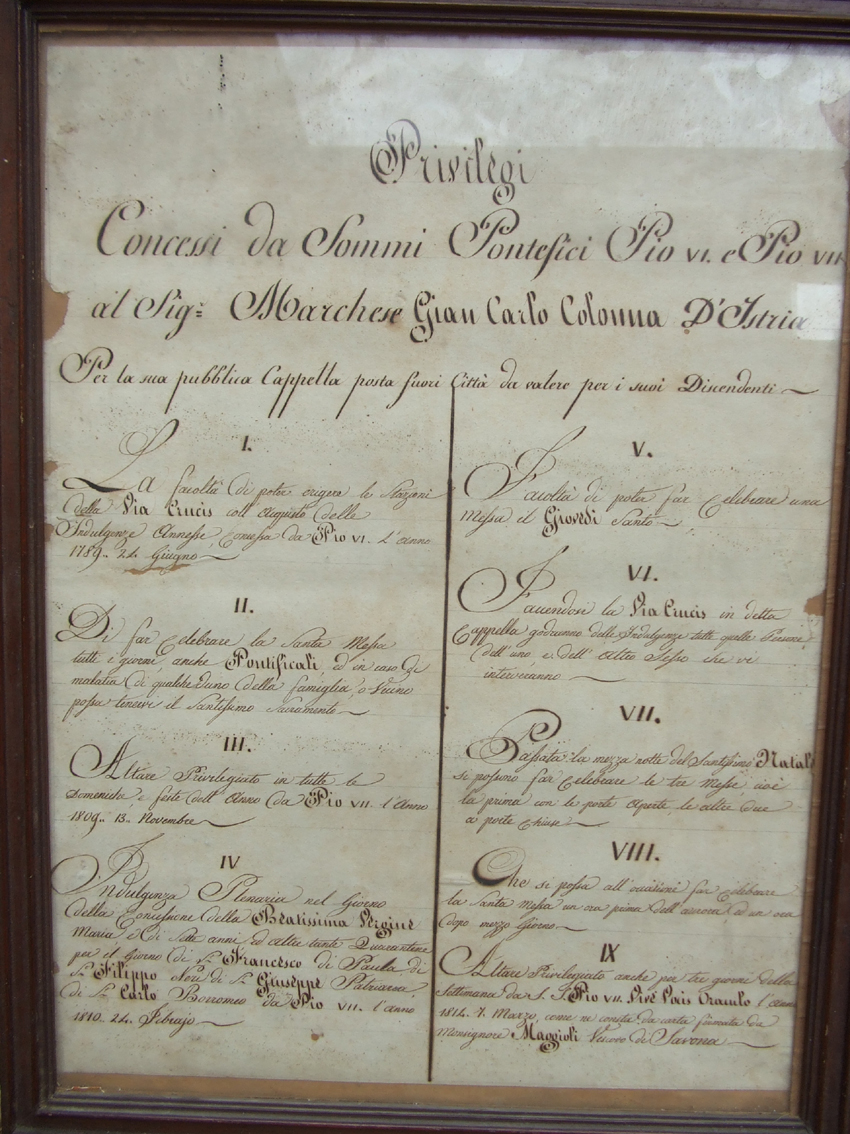 Privilegi
Concessi da Sommi Pontefici Pio VI. e Pio VII
al Sig.r Marchese Gian Carlo Colonna D'Istria
Per la sua pubblica Cappella posta fuori Città da valere per i suoi Discendenti
I.
La facoltà di poter erigere le Stazioni
della Via Crucis coll' Acquisto delle
Indulgenze Annesse, Concessa da Pio VI. L'anno
1789. 24. Giugno
II.
Di far Celebrare la Santa Messa
tutti i giorni, anche Pontificali, ed in caso di
malatia di qualched'uno della famiglia, o vicino
possa tenervi il Santissimo Sacramento
III.
Altare Privilegiato in tutte le
Domeniche, e feste dell' Anno da Pio VII. l'Anno
1809. 13. Novembre
IV
Indulgenza Plenaria nel Giorno
della Concezione della Beatissima Vergine
Maria e di Sette anni ed altre tante Quarantene
per il Giorno di S. Francesco di Paula, di
S. Filippo Neri di S. Giuseppe Patriarca,
di S. Carlo Borromeo da Pio VII. l'anno
1810. 24. Febrajo
V.
Facoltà di poter far Celebrare una
Messa il Giovedì Santo
VI.
Facendosi la Via Crucis in detta
Cappella godranno delle Indulgenze tutte quelle Persone,
dell' uno, e dell' altro Sesso che vi
interveranno
VII.
Passata la mezza notte del Santissimo Natale
si possono far Celebrare le tre Messe, cioè
la prima con le porte aperte, le altre due
a porte chiuse
VIII.
Che si possa all' occasioni far Celebrare
la Santa Messa un ora prima dell' aurora, ed un ora
dopo mezzo Giorno
IX
Altare Privilegiato anche per tre giorni della
Settimana da S. S. Pio VII. Vivæ Vocis Oraculo l'Anno
1814. 7. Marzo, come ne consta da carta firmata da
Monsignore Maggioli Vescovo di Savona